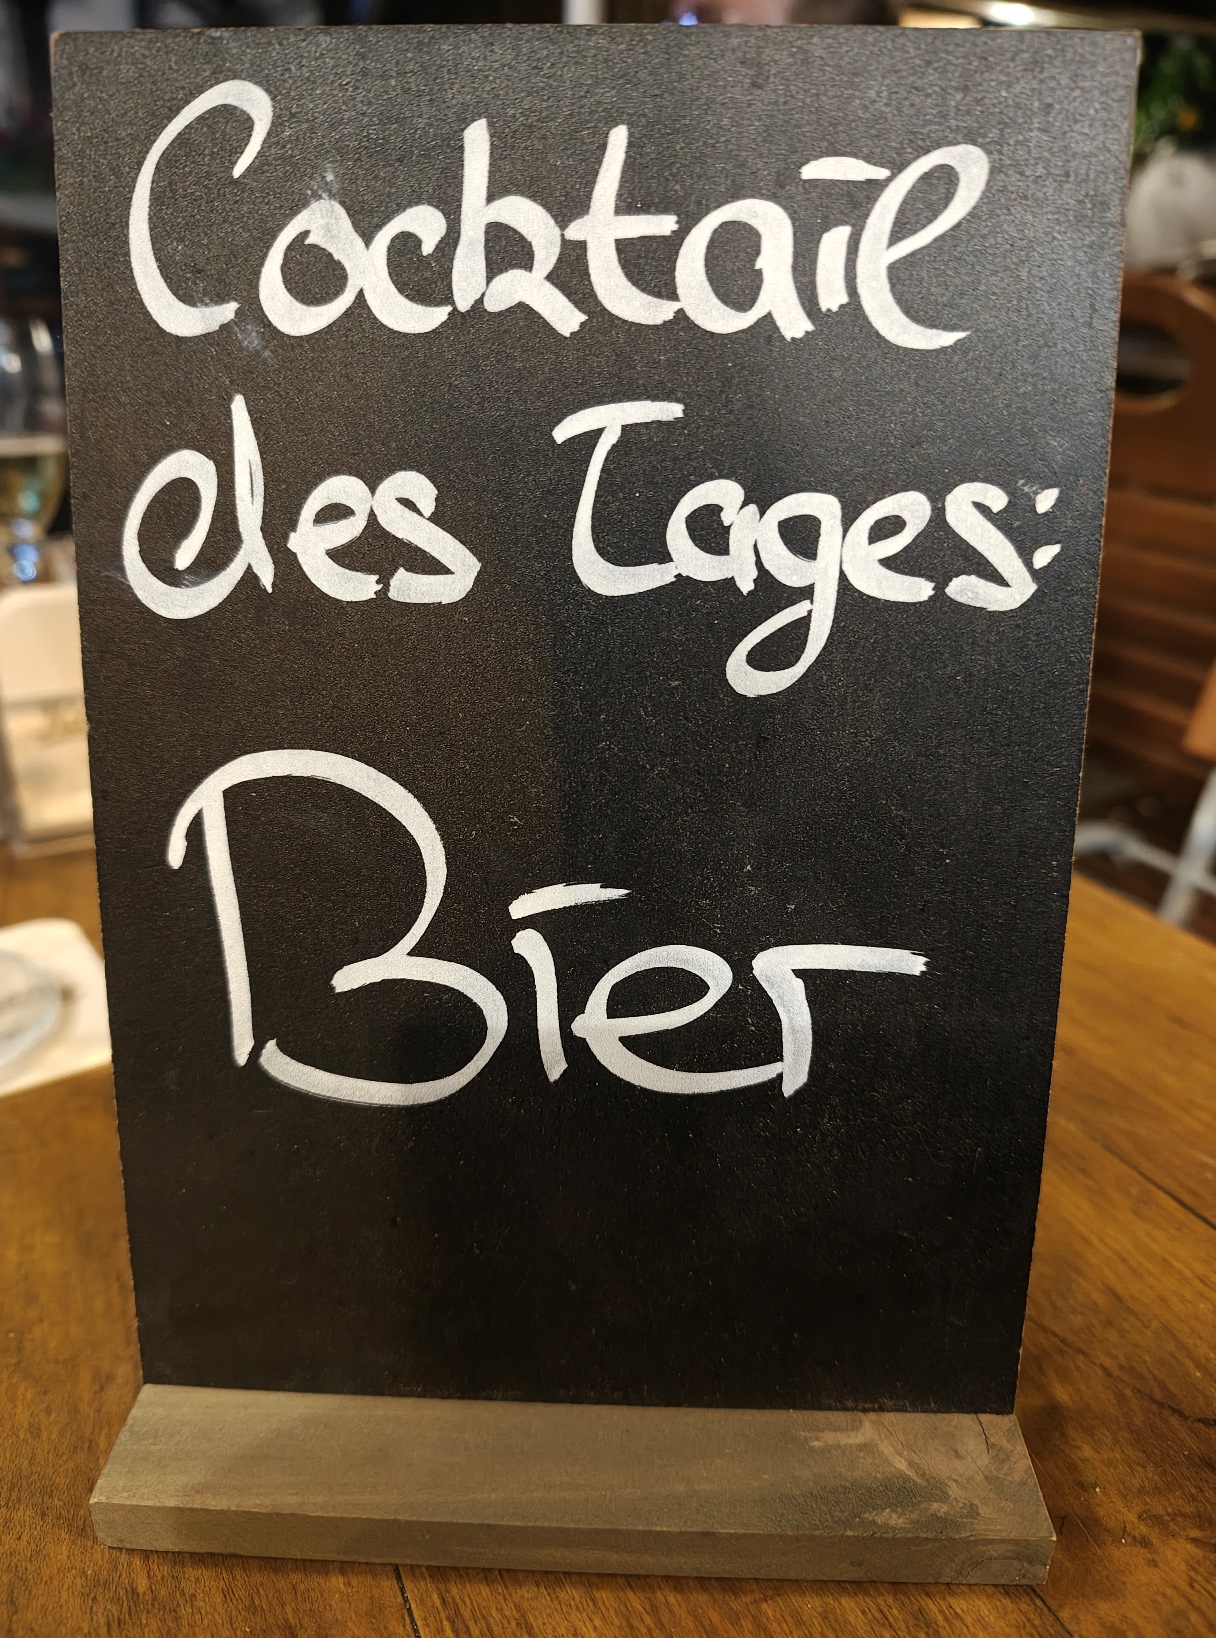 Cocktail
des Tages:
Bier